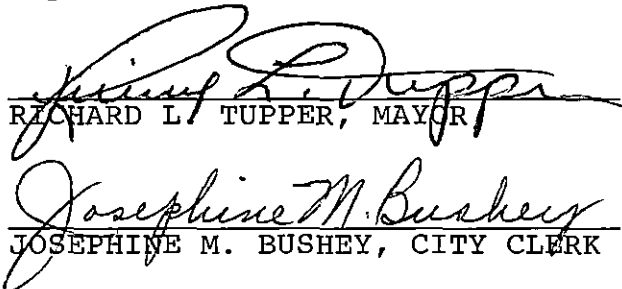 Richard L. Tupper
RICHARD L. TUPPER, MAYOR
Josephine M. Bushey
JOSEPHINE M. BUSHEY, CITY CLERK